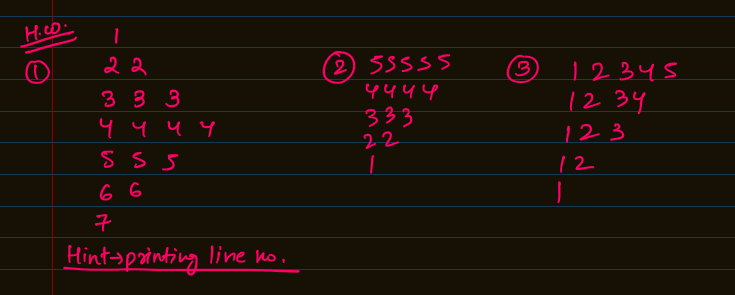 H.W.
① 1
2 2
3 3 3
4 4 4 4
5 5 5
6 6
7
Hint→printing line no.
② 5 5 5 5 5
4 4 4 4
3 3 3
2 2
1
③ 1 2 3 4 5
1 2 3 4
1 2 3
1 2
1